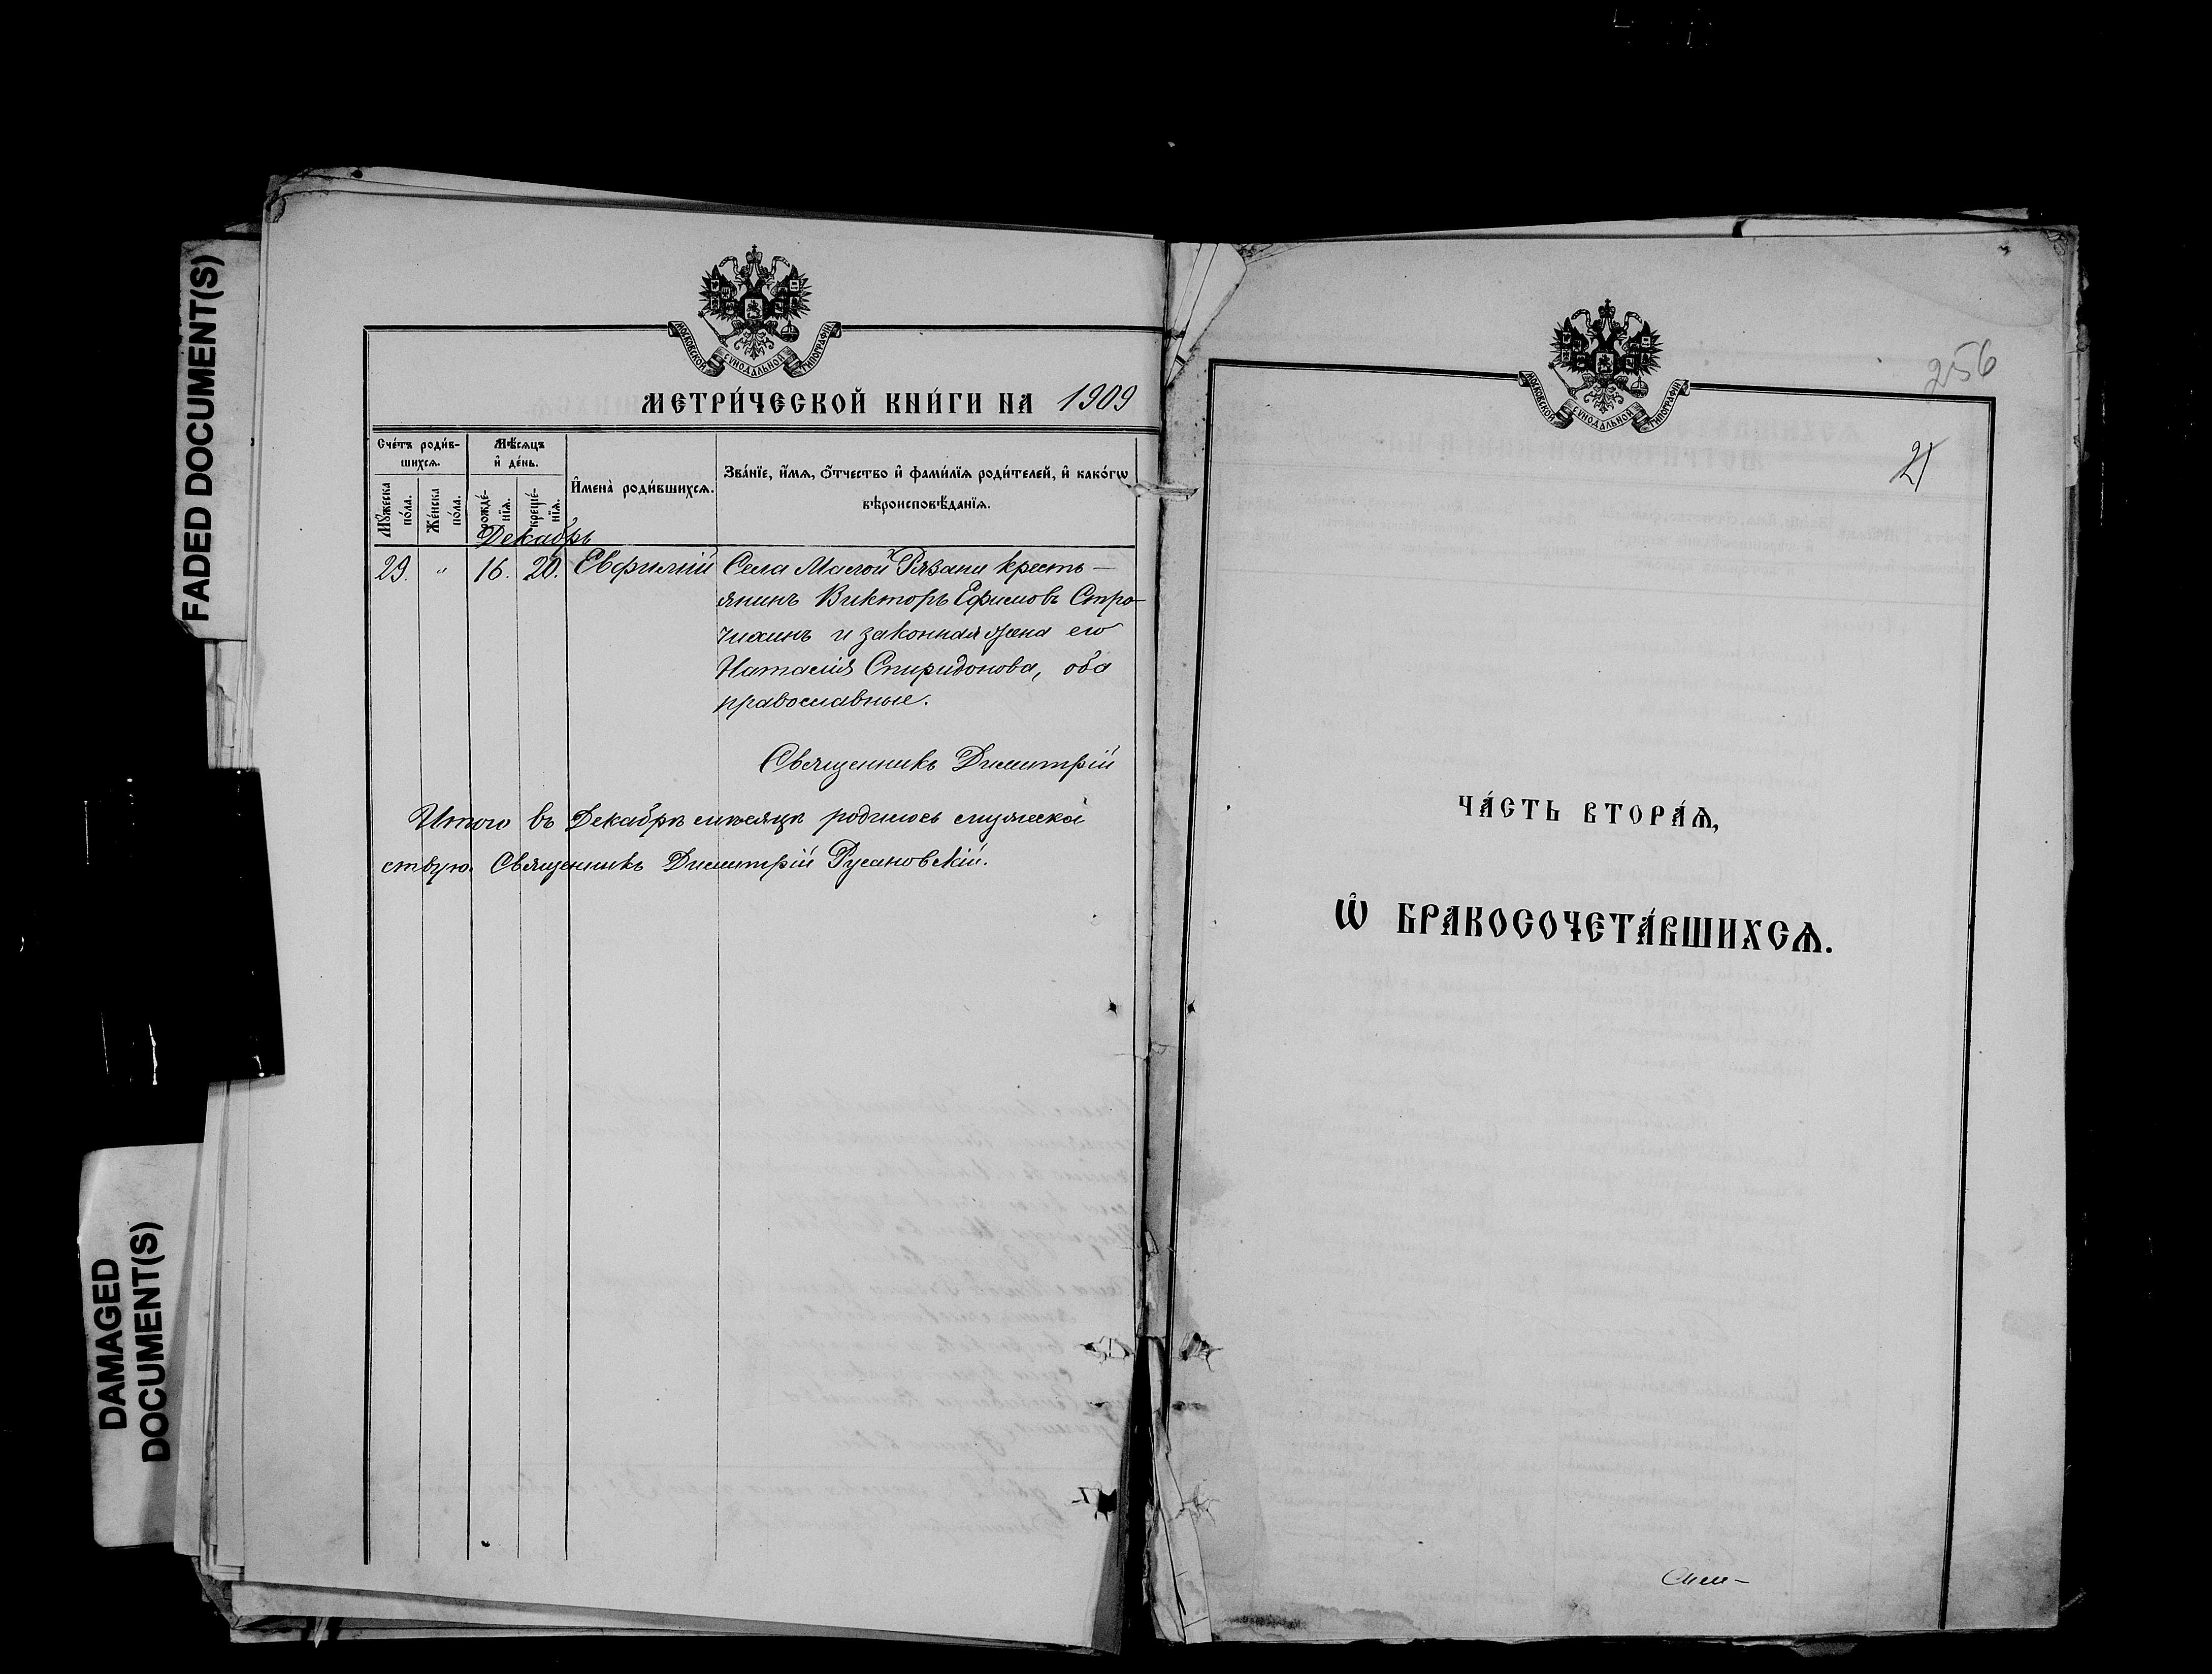 FADED DOCUMENT(S)
DAMAGED
DOCUMENT(S)
МОСКОВСКОЙ СѴНОДАЛЬНОЙ ТИПОГРАФІИ
МЕТРИ́ЧЕСКОЙ КНИ́ГИ НА 1909
Сче́тъ роди́в-
шихсѧ.
Мѣ́сѧцъ
и҆ де́нь.
И҆мена̀ роди́вшихсѧ.
Зва́нїе, и҆́мѧ, ѻ҆́тчество и҆ фами́лїѧ роди́телей, и҆ како́гѡ
вѣроисповѣ́данїѧ.
Мꙋ́жеска
по́ла.
Же́нска
по́ла.
рожде́-
нїѧ.
креще́-
нїѧ.
Декабрь
29. " 16. 20. Евфимій Села Малой Рязани кресть-
янинъ Викторъ Ефимовъ Стро-
чихинъ и законная жена его
Наталія Спиридонова, оба
православные.
Священникъ Димитрій
Итого въ Декабрѣ мѣсяцѣ родилось мужеска
ствую. Священникъ Димитрій Русановскій.
МОСКОВСКОЙ СѴНОДАЛЬНОЙ ТИПОГРАФІИ
256
21
ЧА́СТЬ ВТОРА́Ѧ,
Ѡ҆ БРАКОСОЧЕТА́ВШИХСѦ.